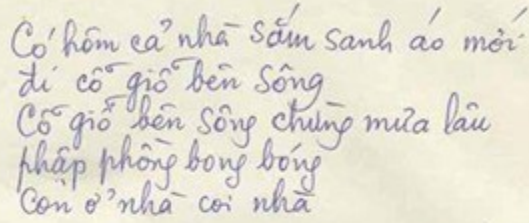 Có hôm cả nhà sắm sanh áo mới
đi cỗ giỗ bên sông
Cỗ giỗ bên sông chừng mưa lâu
phập phồng bong bóng
Con ở nhà coi nhà